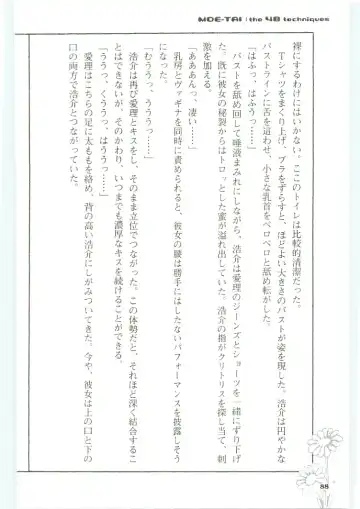 MOE-TAI | the 48 techniques
裸にするわけにはいかない。ここのトイレは比較的清潔だった。
Tシャツをまくり上げ、ブラをずらすと、ほどよい大きさのバストが姿を現した。浩介は円やかな
バストラインに舌を這わせ、小さな乳首をペロペロと舐め転がした。
「はふっ、はふうっ……」
バストを舐め回して唾液まみれにしながら、浩介は愛理のジーンズとショーツを一緒にずり下げ
た。既に彼女の秘裂からはトロッとした蜜が溢れ出していた。浩介の指がクリトリスを探し当て、刺
激を加える。
「あああんっ、凄い……」
乳房とヴァギナを同時に責められると、彼女の腰は勝手にはしたないパフォーマンスを披露しそう
になった。
「むううっ、ううう……」
浩介は再び愛理とキスをし、そのまま立位でつながった。この体勢だと、それほど深く結合するこ
とはできないが、そのかわり、いつまでも濃厚なキスを続けることができる。
「ううっ、くううっ、はううっ……」
愛理はこちらの足に太ももを絡め、背の高い浩介にしがみついてきた。今や、彼女は上の口と下の
口の両方で浩介とつながっていた。
88